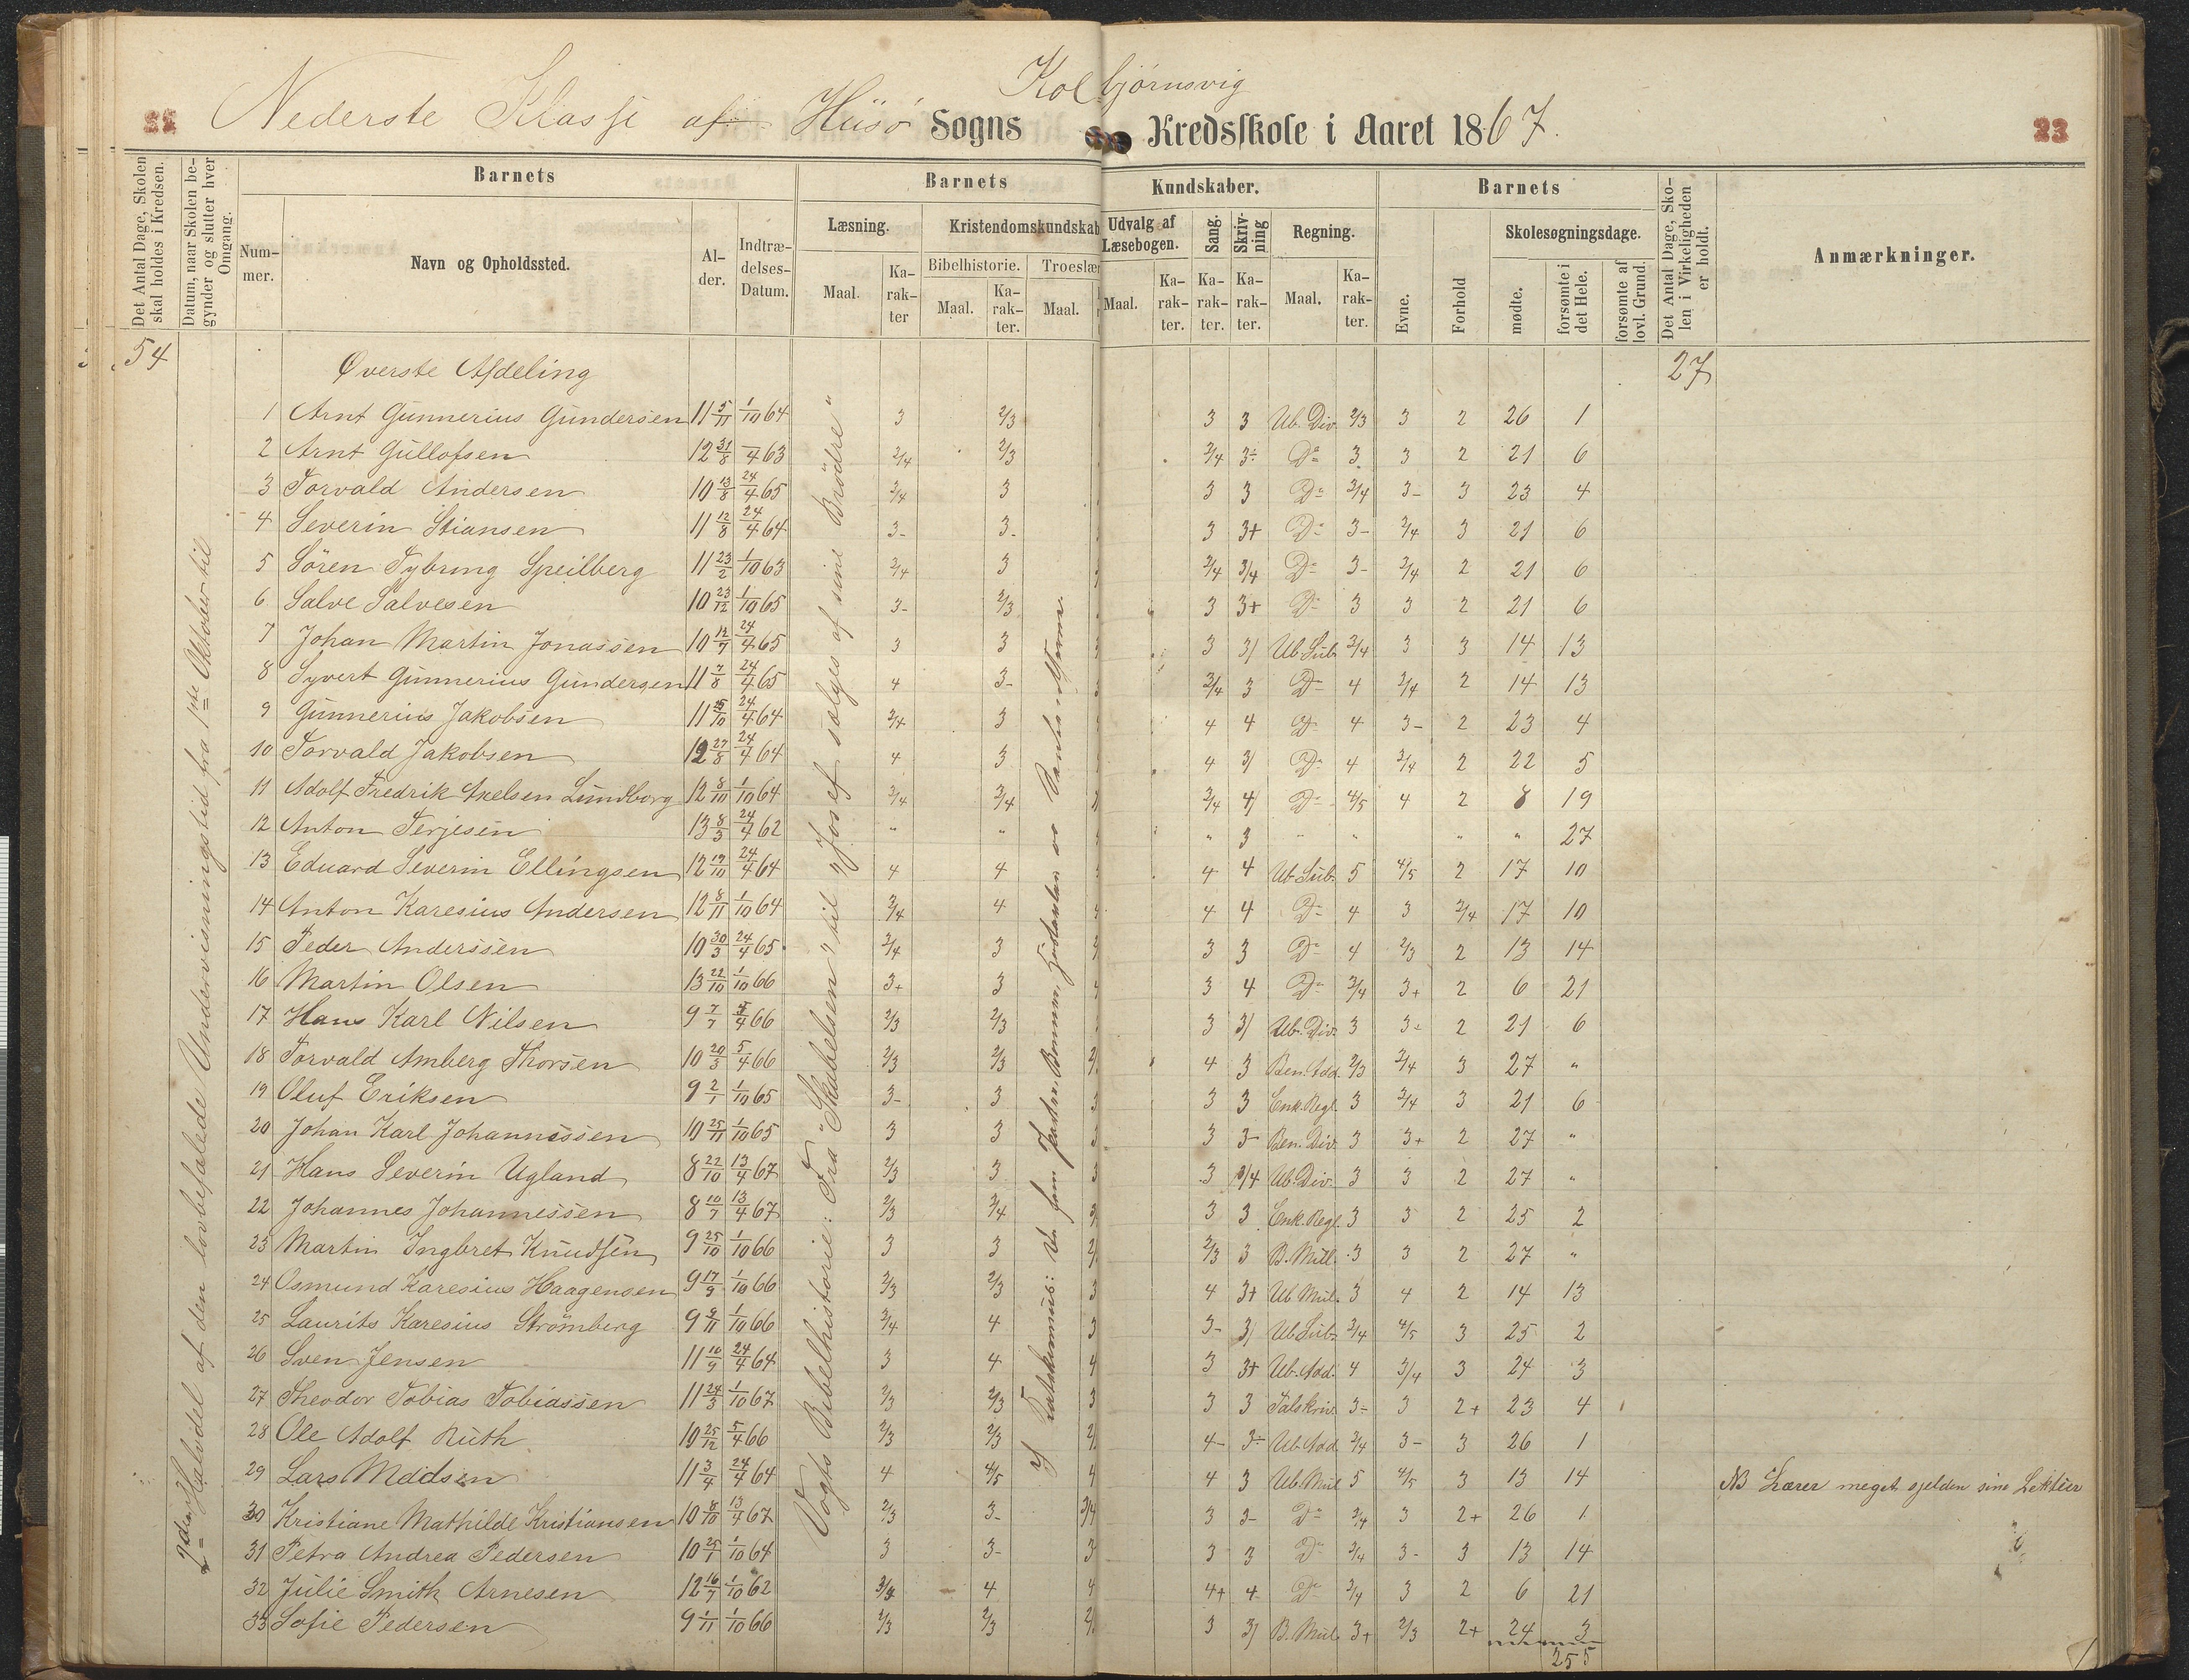 22
Nederste Klasse af Hisö Sogns Kolbjörnsvig Kredsskole i Aaret 1867.
23
Det Antal Dage, Skolen skal holdes i Kredsen.
Datum, naar Skolen begynder og slutter hver Omgang.
Barnets
Nummer.
Navn og Opholdssted.
Alder.
Indtrædelses-Datum.
Barnets
Læsning.
Maal.
Karakter
Kristendomskundskab
Bibelhistorie.
Maal.
Karakter.
Troeslær
Maal.
Kundskaber.
Udvalg af Læsebogen.
Maal.
Karakter.
Sang.
Karakter.
Skrivning
Karakter.
Regning.
Maal.
Karakter.
Barnets
Evne.
Forhold
Skolesøgningsdage.
mødte.
forsømte i det Hele.
forsømte af lovl. Grund.
Det Antal Dage, Skolen i Virkeligheden er holdt.
Anmærkninger.
54
Øverste Afdeling
27
2den Halvdel af den lovbefalede Undervisningstid fra 1ste Oktober til
Vogts Bibelhistorie: Fra "Skabelsen" til "Josef sælges af sine Brödre"
1 Arnt Gunnerius Gundersen 11 5/11 1/10 64 3 2/3 3 3 Ub. Div. 2/3 3 2 26 1
2 Arnt Gullofsen 12 31/8 /4 63 3/4 2/3 3/4 3- Do 3 3 2 21 6
3 Torvald Andersen 10 13/8 24/4 65 3/4 3 3 3 Do 3/4 3- 3 23 4
4 Severin Stiansen 11 12/8 24/4 64 3- 3- 3 3+ Do 3- 3/4 3 21 6
5 Sören Tybring Speilberg 11 23/2 1/10 63 3/4 3 3/4 3/4 Do 3- 3/4 2 21 6
6 Salve Salvesen 10 23/12 1/10 65 3- 2/3 3 3+ Do 3 3 2 21 6
7 Johan Martin Jonassen 10 12/7 24/4 65 3 3 3 3/ Ub. Sub. 3/4 3 3 14 13
8 Syvert Gunnerius Gundersen 11 7/8 24/4 65 4 3- 3/4 3 Do 4 3/4 2 14 13
9 Gunnerius Jakobsen 11 /10 24/4 64 3/4 3 4 4 Do 4 3- 2 23 4
10 Torvald Jakobsen 12 27/8 24/4 64 4 3 4 3/ Do 4 3/4 2 22 5
11 Adolf Fredrik Axelsen Lundborg 12 8/10 1/10 64 3/4 3/4 3/4 4/ Do 4/5 4 2 8 19
12 Anton Terjesen 13 8/3 24/4 62 " " " 3 " " " " 27
13 Eduard Severin Ellingsen 12 19/10 24/4 64 4 4 4 4 Ub. Sub. 5 4/5 2 17 10
14 Anton Karesius Andersen 12 8/11 1/10 64 3/4 4 4 4 Do 4 3 3/4 17 10
15 Peder Anderssen 10 30/3 24/4 65 3/4 3 3 3 Do 4 2/3 2 13 14
16 Martin Olsen 13 22/10 1/10 66 3+ 3 3 4 Do 3/4 3+ 2 6 21
17 Hans Karl Nilsen 9 7/7 5/4 66 2/3 2/3 3 3/ Ub. Div. 3 3- 2 21 6
18 Torvald Amberg Thorsen 10 20/3 5/4 66 2/3 2/3 4 3 Ben. Add. 2/3 3/4 3 27 "
19 Oluf Eriksen 9 2/1 1/10 65 3- 3 3 3 3 Enk. Regl. 3 3/4 3 21 6
20 Johan Karl Johannessen 10 25/11 1/10 65 3 3 3 3 3- Ben. Div. 3 3+ 2 27 "
21 Hans Severin Ugland 8 22/10 13/4 67 2/3 3 3 3 3/4 Ub. Div. 3 3 2 27 "
22 Johannes Johannessen 8 10/7 13/4 67 2/3 3/4 3 3 Enk. Regl. 3 3 2 25 2
23 Martin Ingbret Knudsen 9 25/10 1/10 66 3 3 2/3 3 B. Mull. 3 3 2 27 "
24 Osmund Karesius Haagensen 9 17/9 1/10 66 2/3 2/3 3 4 3+ Ub. Mul. 3 4 2 14 13
25 Laurits Karesius Strömberg 9 9/11 1/10 66 3/4 4 3 3- 3/ Ub. Sub. 3/4 4/5 3 25 2
26 Sven Jensen 11 10/9 24/4 64 3 4 4 3 3+ Ub. Add. 4 3/4 3 24 3
27 Theodor Tobias Tobiassen 11 24/3 1/10 67 2/3 2/3 3 3 3 Talskriv. 3- 3 2+ 23 4
28 Ole Adolf Ruth 10 25/12 5/4 66 2/3 2/3 4- 3- Ub. Add. 3/4 3- 3 26 1
29 Lars Madsen 11 3/4 24/4 64 4 4/5 4 4 3 Ub. Mul 5 4/5 3 13 14 NB Lærer meget sjelden sine Lektier
30 Kristiane Mathilde Kristiansen 10 8/10 13/4 67 2/3 3- 3/4 3 3- Do 3/4 3 2+ 26 1
31 Petra Andrea Pedersen 10 25/1 1/10 64 3 3- 3 3 3 Do 3/4 3- 3 13 14
32 Julie Smith Arnesen 12 16/7 1/10 62 3/4 4 4 4+ 4 Do 3/4 3 2 6 21
33 Sofie Pedersen 9 1/11 1/10 66 2/3 2/3 3 3/ B. Mul. 3+ 2/3 2+ 24 3
255